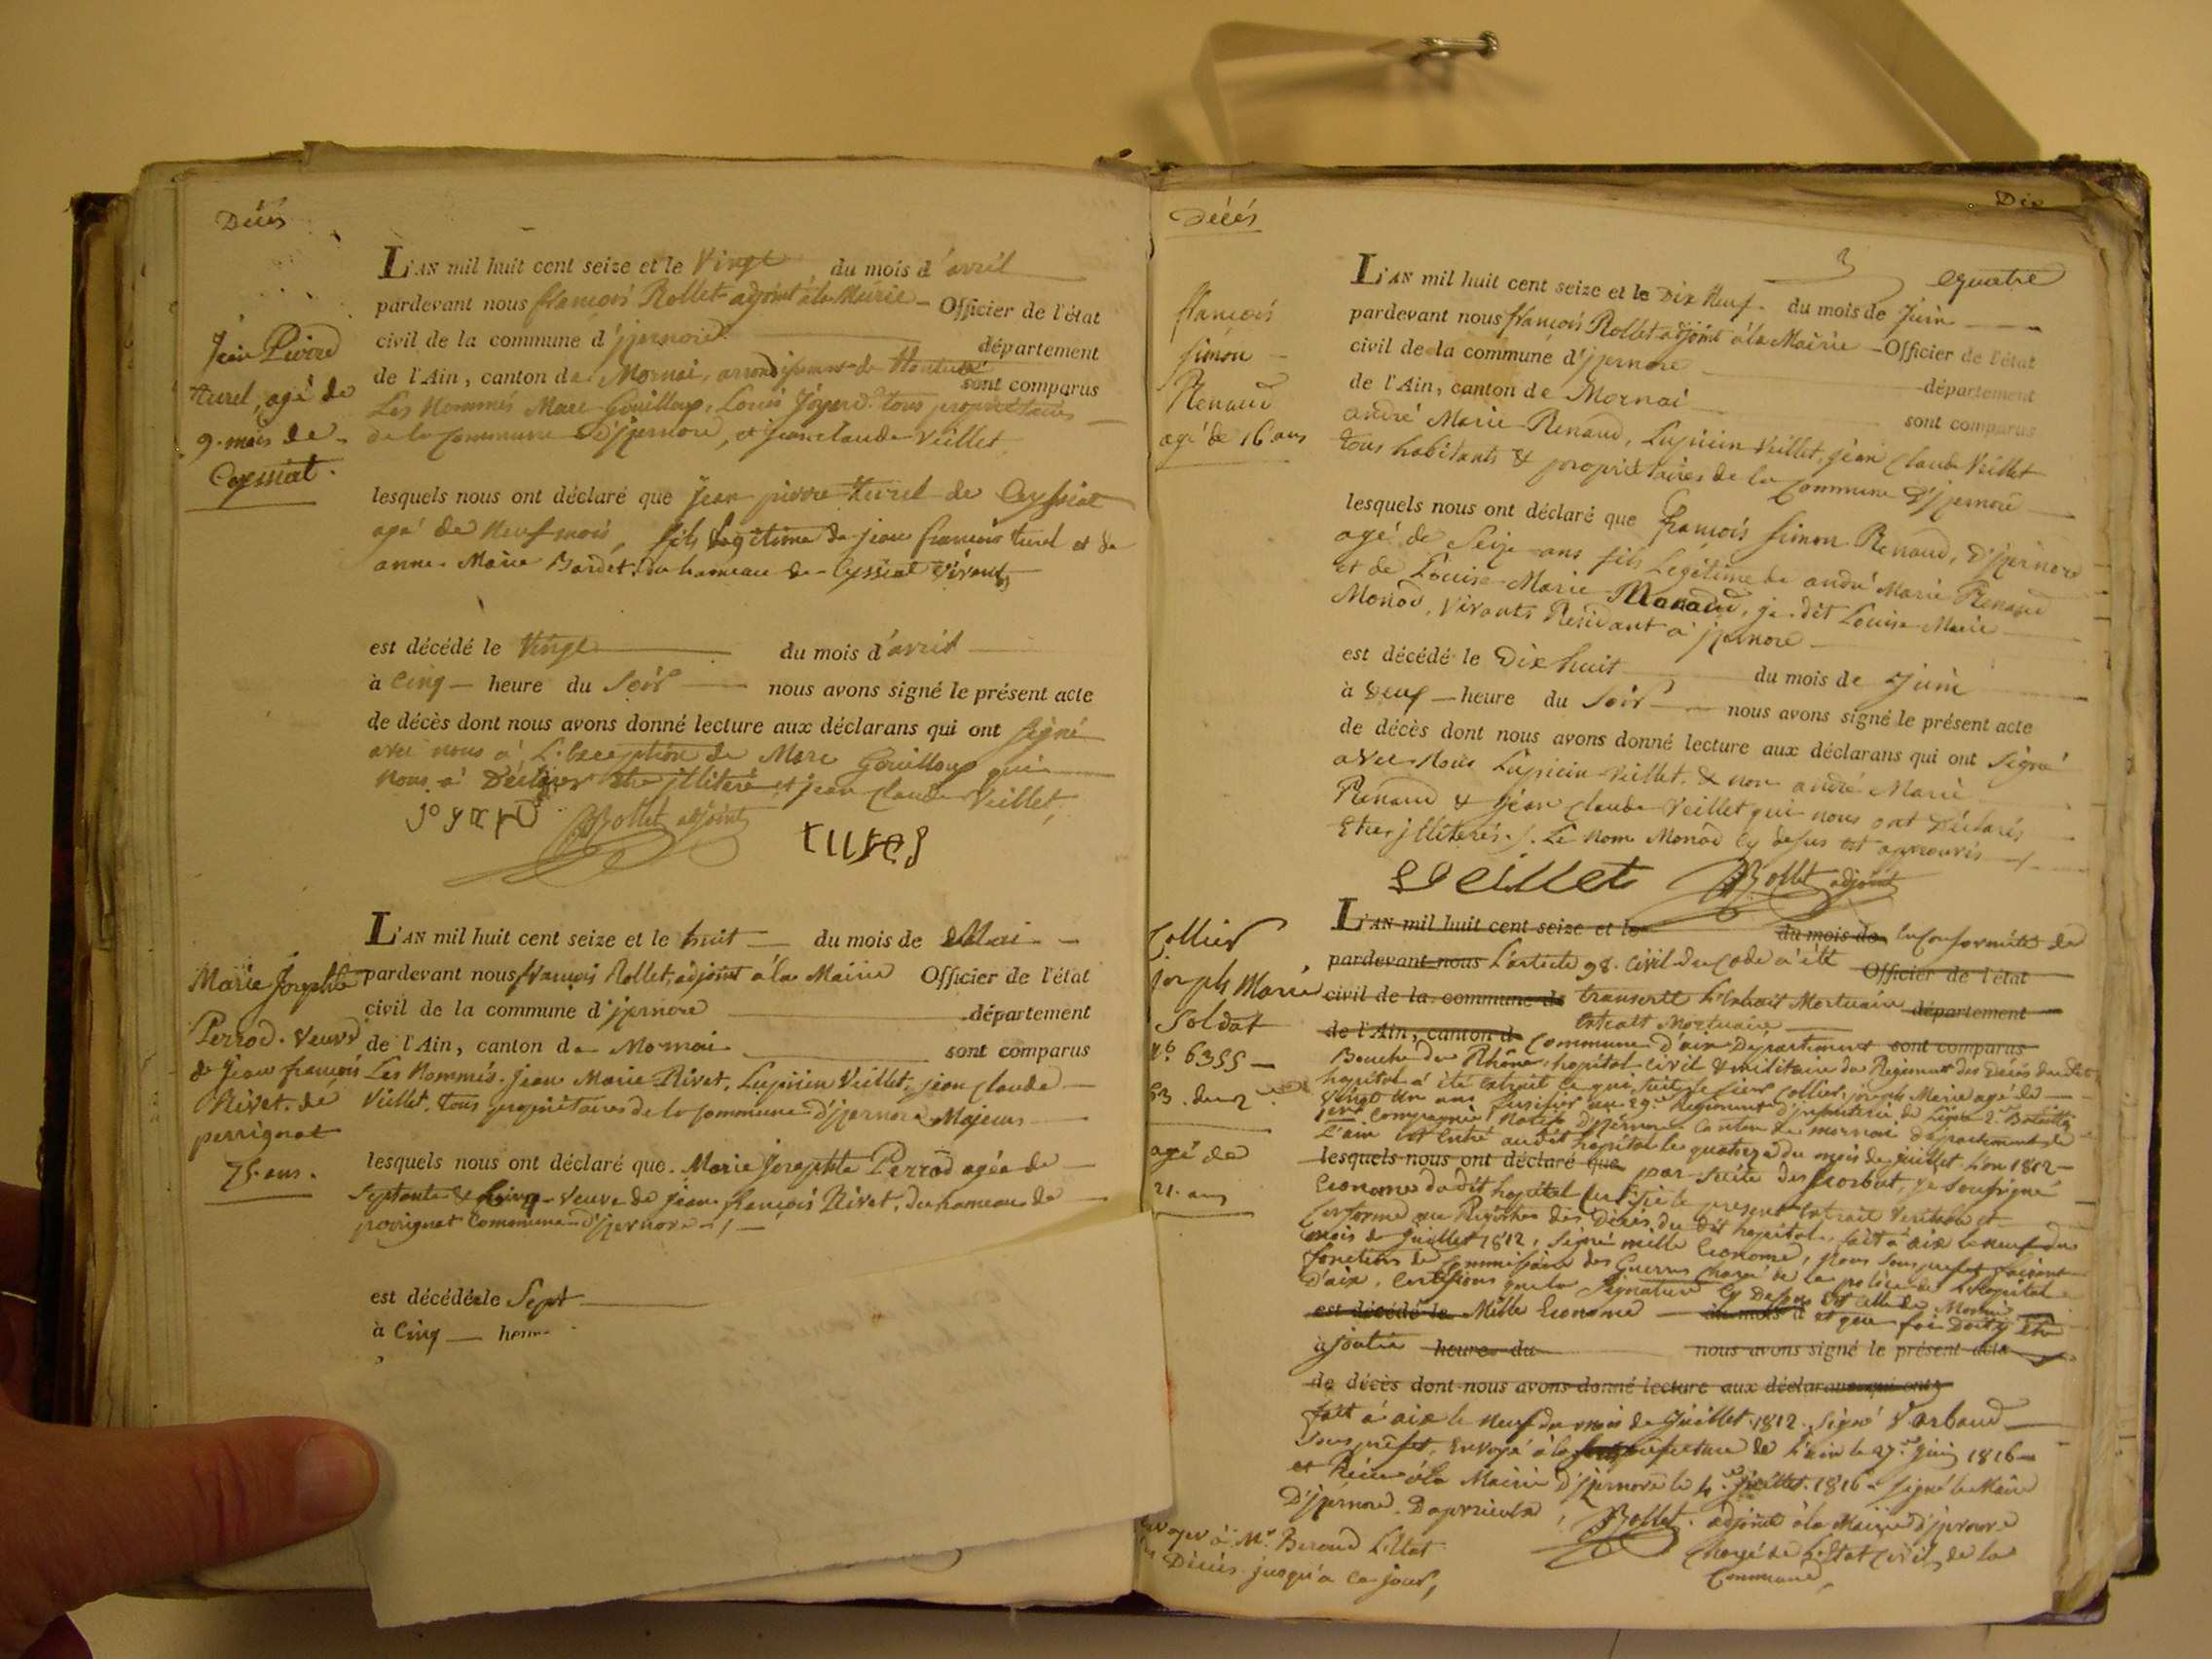 Décés
Jean Pierre
turel, agé de
9. mois de
Ceyssiat.
L'AN mil huit cent seize et le Vingt du mois d'avril
pardevant nous françois Rollet adjoint à la Mairie - Officier de l'état
civil de la commune d'jzernore département
de l'Ain, canton de Mornai, arrondissement de Nantua sont comparus
Les Nommés Marc Gouilloux, Louis Joyard tous propriétaires
de la Commune d'jzernore, et jean claude Veillet
lesquels nous ont déclaré que Jean pierre turel de Ceyssiat
agé de Neuf mois, fils Légitime de jean francois turel et de
anne Marie Bardet, du hameau de Ceyssiat Vivants
est décédé le Vingt du mois d'avril
à Cinq heure du Soir nous avons signé le présent acte
de décès dont nous avons donné lecture aux déclarans qui ont signé
avec nous à L'exception de Marc Gouilloux qui
nous a Déclaré être jlliteré et jean claude Veillet,
joyard Rollet adjoint turel
Marie Josephte
Perrod. Veuve
de Jean françois
Rivet. de
perrignat
75. ans.
L'AN mil huit cent seize et le huit du mois de Mai
pardevant nous françois Rollet, adjoint à la Mairie Officier de l'état
civil de la commune d'jzernore département
de l'Ain, canton de Mornai sont comparus
Les Nommés. Jean Marie Rivet, Lupicin Veillet, jean claude
Veillet, tous propriétaires de la Commune d'jzernore Majeurs
lesquels nous ont déclaré que Marie Josephte Perrod agée de
Septante & Cinq Veuve de jean françois Rivet, du hameau de
perrignat Commune d'jzernore
est décédée le Sept
à Cinq heure
Décés
Dix
quatre
françois
simon
Renaud
agé de 16 ans
L'AN mil huit cent seize et le Dix Neuf du mois de Juin
pardevant nous françois Rollet adjoint à la Mairie - Officier de l'état
civil de la commune d'jzernore département
de l'Ain, canton de Mornai sont comparus
andré Marie Renaud, Lupicin Veillet, jean Claude Veillet
tous habitants & propriétaires de la Commune d'jzernore
lesquels nous ont déclaré que françois simon Renaud, d'jzernore
agé de Seize ans fils Légitime de andré Marie Renaud
et de Louise Marie Monod, je dit Louise Marie
Monod, Vivants Résidant à jzernore
est décédé le Dix huit du mois de Juin
à Neuf heure du Soir nous avons signé le présent acte
de décès dont nous avons donné lecture aux déclarans qui ont Signé
avec Nous Lupicin Veillet, & non andré Marie
Renaud & Jean Claude Veillet qui nous ont Déclarés
Etre jlliterés. Le nom Monod Cy desus est approuvés
Veillet Rollet adjoint
Collier
joseph Marie
Soldat
N.o 6355
agé de
21. ans
L'AN mil huit cent seize et le du mois de En Conformité de
pardevant nous L'article 98. Civil du Code a été Officier de l'état
civil de la commune de transcrit L'extrait Mortuaire département
de l'Ain, canton d extrait Mortuaire
Commune d'aix Departement sont comparus
Bouche du Rhône, hopital civil & militaire du Registre des Décés du dit
hopital a été extrait ce qui suit, le sieur Collier, joseph Marie agé de
Vingt Un ans fusilier au 29.e Régiment d'jnfanterie de Ligne 2.e Bataillon
1ere Compagnie, Natif d'jzernore Canton de mornai département de
L'ain est Entré au dit hopital le quatre du mois de juillet L'an 1812
lesquels nous ont déclaré que par Suite du Scorbut, je Soussigné
Econome du dit hopital Certifie le present extrait Veritable et
Conforme au Registre des Décés du dit hopital, fait à aix le neuf du
mois de Juillet 1812, Signé mille Econome, Nous Sous prefet faisant
fonctions de Commissaire des Guerres Chargé de la police de L'hopital
D'aix, Certifions que la Signature Cy Dessus est celle de Mr
est décédé le Mille Econome du mois d et que foi Doit y Etre
ajoutée heure du nous avons signé le présent acte
de décès dont nous avons donné lecture aux déclarans qui ont
fait à aix le neuf du mois de Juillet 1812. Signé
Sous préfet, Envoyé à la préfecture de L'ain le 27. Juin 1816
et Reçu à la Mairie D'jzernore le 4. Juillet 1816. Signé le Maire
D'jzernore. Rollet. adjoint à la Mairie d'jzernore
Chargé de L'Etat Civil de la
Commune
envoyer à Mr. Beroud L'Etat
Décés jusqu'à ce jour,